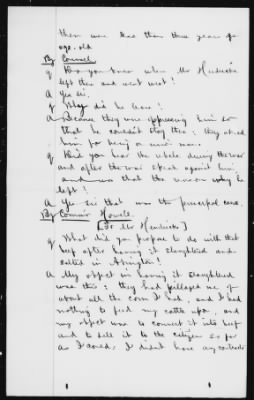 them were less than three years of
age. old
By Counsel.
Q Do you know when Mr Hendricks
left there and went west?
A Yes sir.
Q Why did he leave?
A Because they were oppressing him so
that he couldn't stay there; they
him for being a union man.
Q Did you hear the whole during the war
and after the war speak against him
and that the reason why he
left?
A Yes sir that was the principal cause.
By Commr Howell.
[To Mr Hendricks]
Q What did you propose to do with that
beef after having it slaughtered and
salted in Abingdon?
A My object in having it slaughtered
was this: they had pillaged me of
about all the corn I had, and I had
nothing to feed my cattle upon, and
my object was to convert it into beef
and to sell it to the citizens as far
as I could; I didn't have any contracts